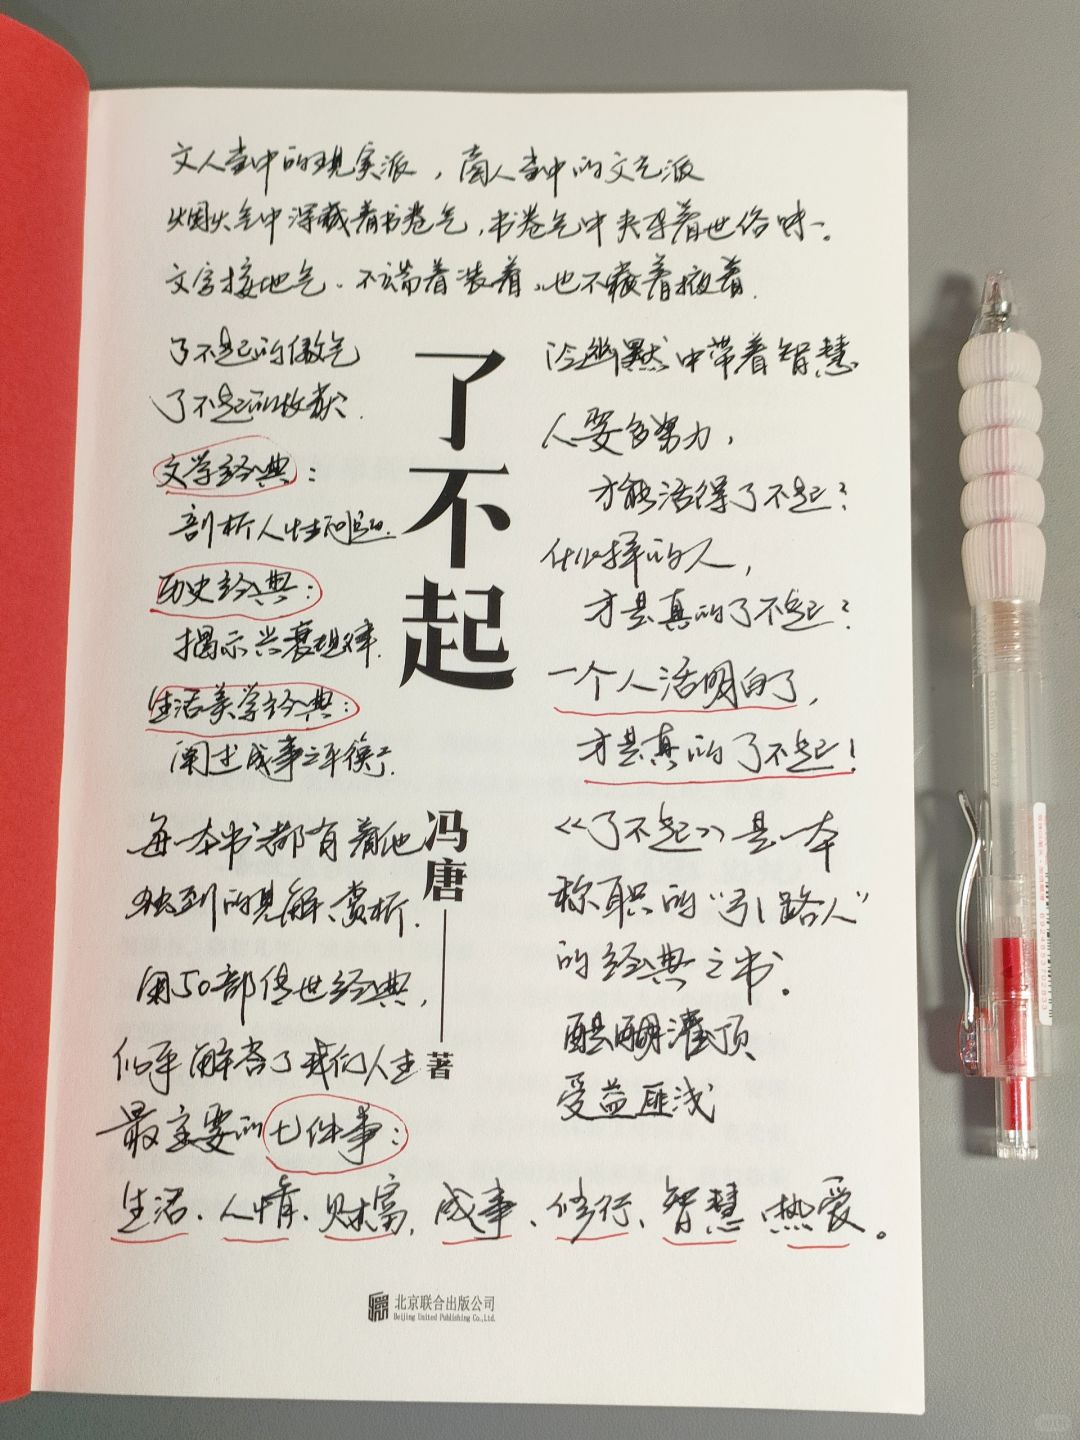 文人堂中的现实派，商人堂中的文气派
烟火气中深藏着书卷气，书卷气中夹杂着世俗味。
文字接地气、不端着装着，也不藏着掖着.
了不起的傲气
了不起的收获.
文学经典：
剖析人性问题.
历史经典：
揭示兴衰规律.
生活美学经典：
阐述成事之平衡.
每一本书都有着他
独到的见解、赏析.
用50部传世经典，
似乎解答了我们人生
最主要的七件事：
生活、人情、财富、成事、修行、智慧、热爱。
了不起
冯唐
著
冷幽默中带着智慧
人要多努力，
才能活得了不起？
什么样的人，
才是真的了不起？
一个人活明白了，
才是真的了不起！
《了不起》是一本
称职的“引路人”
的经典之书。
醍醐灌顶
受益匪浅
北京联合出版公司
Beijing United Publishing Co.,Ltd.